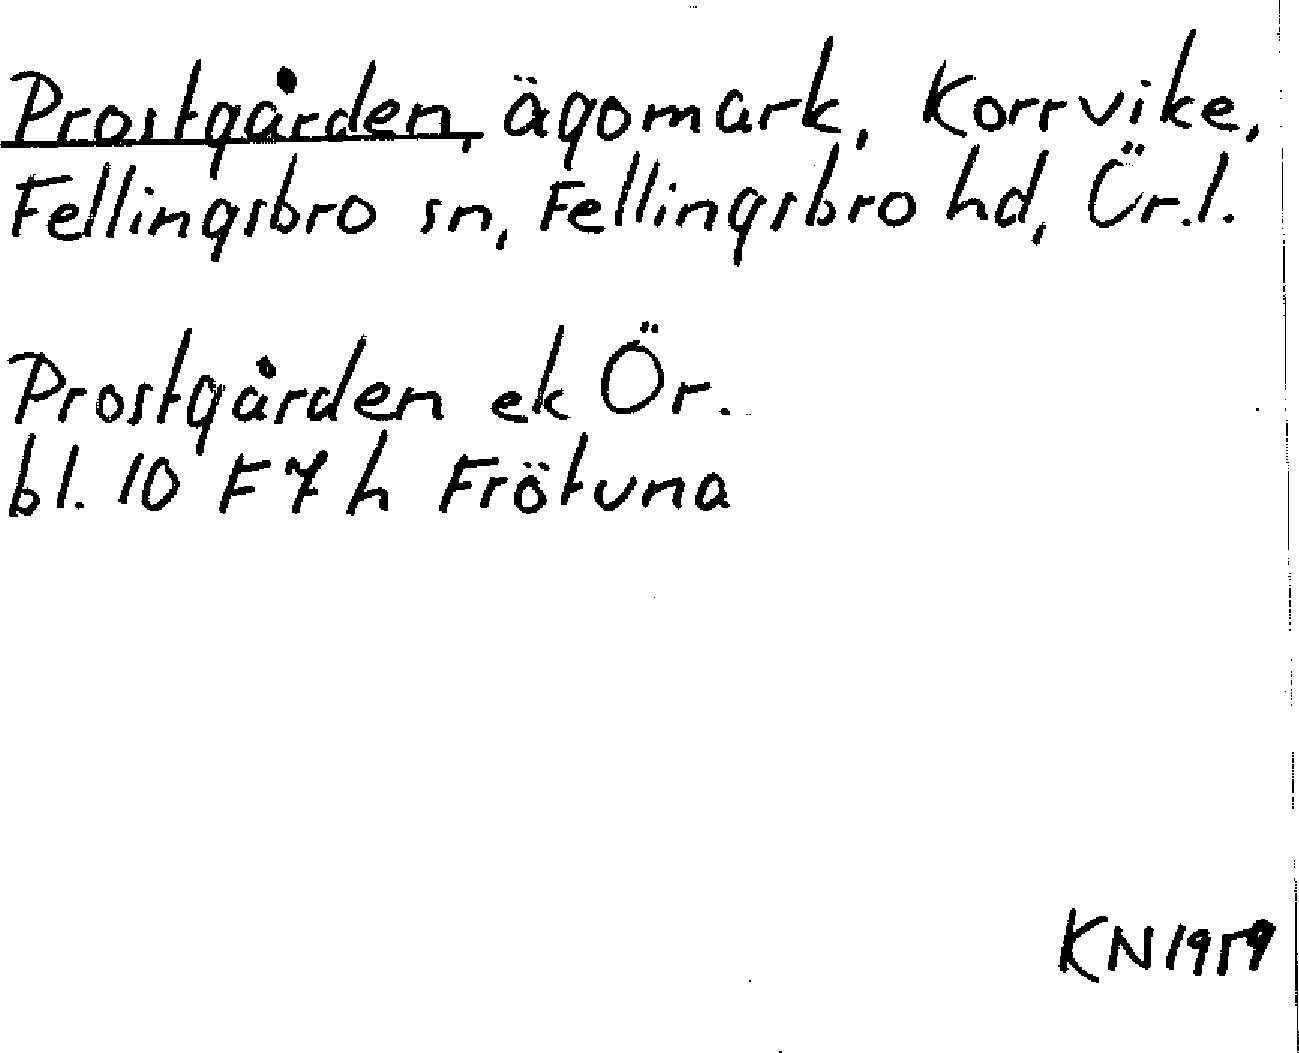 Prostgården, ägomark, Korrvike,
Fellingsbro sn, Fellingsbro hd, Ör.l.
Prostgården ek Ör.
bl. 10 F 7 h Frötuna
KN 1959